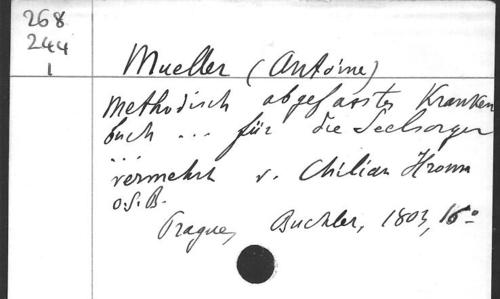 268
244
1
Mueller (Antoine)
Methodisch abgefasstes Kranken
buch ... für die Seelsorger
...
vermehrt v. Chilian Hronn
O.S.B.
Prague, Buchler, 1803, 16º